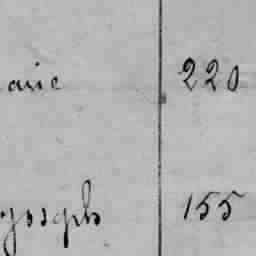 arie 220
Joseph 155